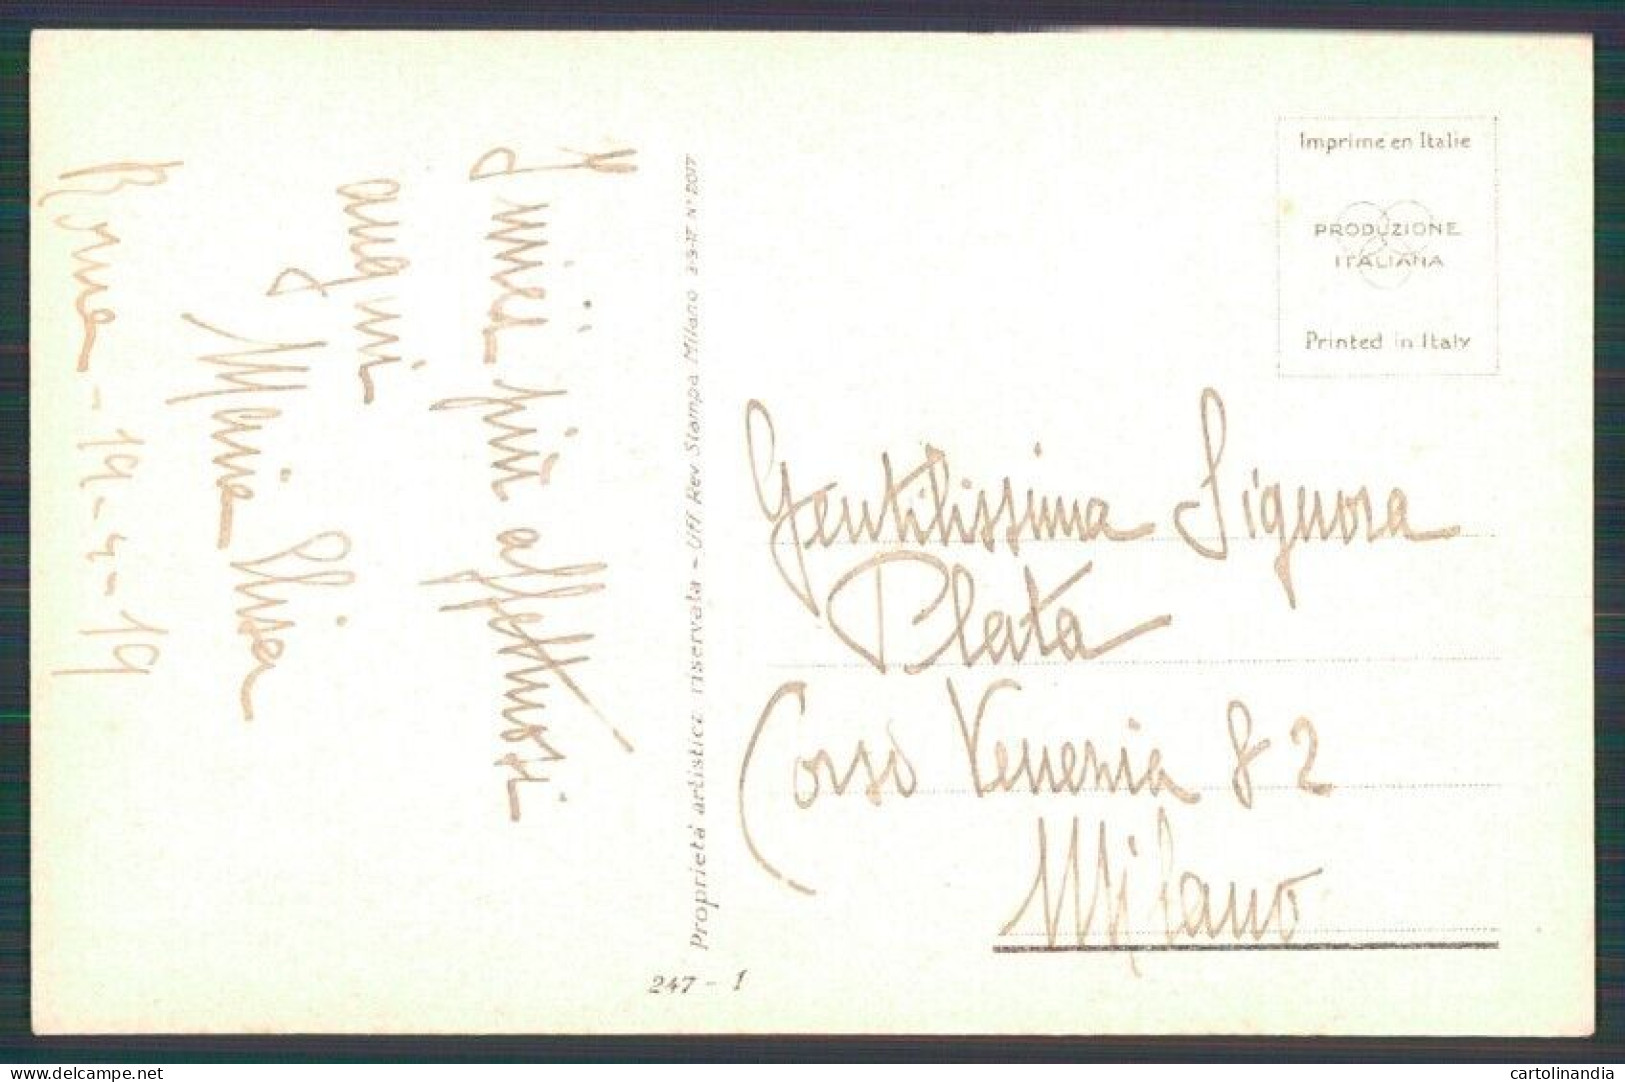 I miei più affettuosi
auguri
Maria Elisa
Roma - 19-4-19
Proprietà artistica riservata - Uff. Rev. Stampa Milano 2-3-17 N° 2017
247 - 1
Imprimé en Italie
PRODUZIONE
ITALIANA
Printed in Italy
Gentilissima Signora
Plata
Corso Venezia 82
Milano
www.delcampe.net
cartolinandia